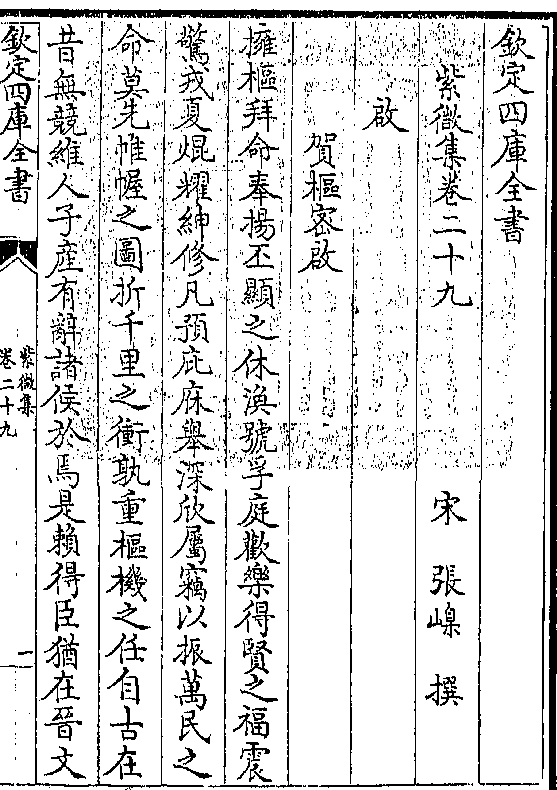 欽定四庫全書
紫微集卷二十九
宋 張嵲 撰
啟
賀樞密啟
擁樞拜命奉揚丕顯之休渙號孚庭歡樂得賢之福震
驚戎夏焜耀紳修凡預庇庥舉深欣屬竊以振萬民之
命莫先帷幄之圖折千里之衝孰重樞機之任自古在
昔無競維人子産有辭諸侯於焉是賴得臣猶在晉文
欽定四庫全書
紫微集
卷二十九
一